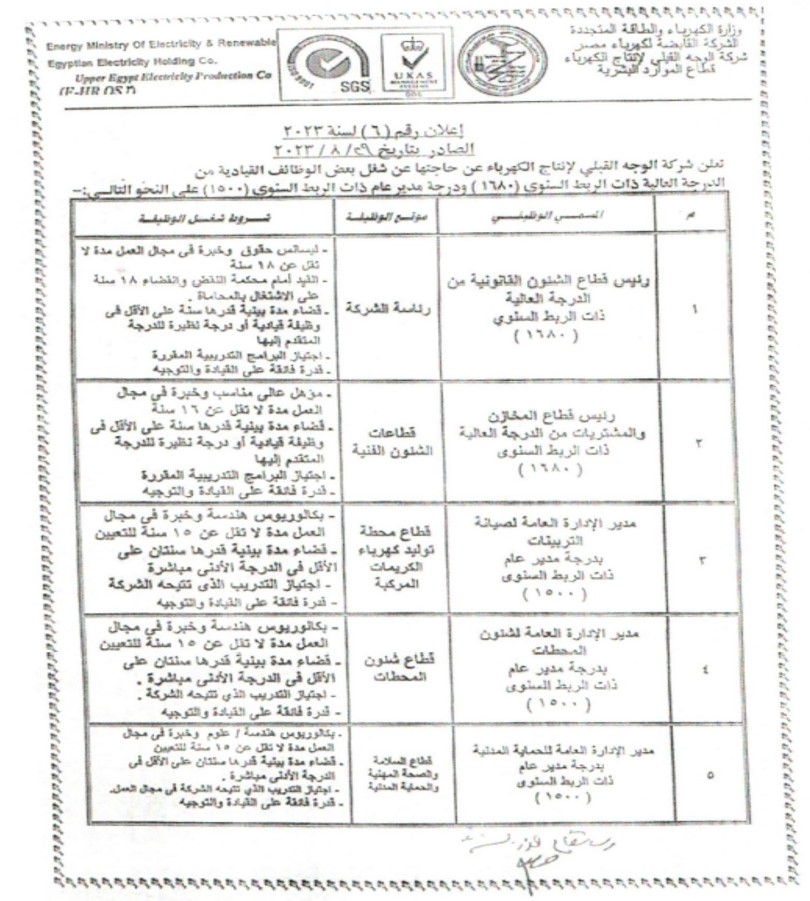 وزارة الكهرباء والطاقة المتجددة
الشركة القابضة لكهرباء مصر
شركة الوجه القبلي لإنتاج الكهرباء
قطاع الموارد البشرية
Energy Ministry Of Electricity & Renewable
Egyptian Electricity Holding Co.
Upper Egypt Electricity Production Co
ISO 9001
SGS
UKAS
MANAGEMENT
SYSTEMS
إعلان رقم (٦) لسنة ٢٠٢٣
الصادر بتاريخ ٢٩/ ٨ / ٢٠٢٣
تعلن شركة الوجه القبلي لإنتاج الكهرباء عن حاجتها عن شغل بعض الوظائف القيادية من
الدرجة العالية ذات الربط السنوى (١٦٨٠) ودرجة مدير عام ذات الربط السنوى (١٥٠٠) على النحو التالى:-
م
المسمى الوظيفى
موقع الوظيفة
شروط شغل الوظيفة
١
رئيس قطاع الشئون القانونية من
الدرجة العالية
ذات الربط السنوي
(١٦٨٠)
رئاسة الشركة
- ليسانس حقوق وخبرة فى مجال العمل مدة لا
تقل عن ١٨ سنة
- القيد أمام محكمة النقض وانقضاء ١٨ سنة
على الاشتغال بالمحاماة .
- قضاء مدة بينية قدرها سنة على الأقل فى
وظيفة قيادية أو درجة نظيرة للدرجة
المتقدم إليها
- اجتياز البرامج التدريبية المقررة
- قدرة فائقة على القيادة والتوجيه
٢
رئيس قطاع المخازن
والمشتريات من الدرجة العالية
ذات الربط السنوى
(١٦٨٠)
قطاعات
الشئون الفنية
- مؤهل عالى مناسب وخبرة فى مجال
العمل مدة لا تقل عن ١٦ سنة
- قضاء مدة بينية قدرها سنة على الأقل فى
وظيفة قيادية أو درجة نظيرة للدرجة
المتقدم إليها
- اجتياز البرامج التدريبية المقررة
- قدرة فائقة على القيادة والتوجيه
٣
مدير الإدارة العامة لصيانة
التربينات
بدرجة مدير عام
ذات الربط السنوى
(١٥٠٠)
قطاع محطة
توليد كهرباء
الكريمات
المركبة
- بكالوريوس هندسة وخبرة فى مجال
العمل مدة لا تقل عن ١٥ سنة للتعيين
- قضاء مدة بينية قدرها سنتان على
الأقل فى الدرجة الأدنى مباشرة
- اجتياز التدريب الذى تتيحه الشركة
- قدرة فائقة على القيادة والتوجيه
٤
مدير الإدارة العامة لشئون
المحطات
بدرجة مدير عام
ذات الربط السنوى
(١٥٠٠)
قطاع شئون
المحطات
- بكالوريوس هندسة وخبرة فى مجال
العمل مدة لا تقل عن ١٥ سنة للتعيين
- قضاء مدة بينية قدرها سنتان على
الأقل فى الدرجة الأدنى مباشرة .
- اجتياز التدريب الذي تتيحه الشركة .
- قدرة فائقة على القيادة والتوجيه
٥
مدير الإدارة العامة للحماية المدنية
بدرجة مدير عام
ذات الربط السنوى
(١٥٠٠)
قطاع السلامة
والصحة المهنية
والحماية المدنية
- بكالوريوس هندسة / علوم وخبرة فى مجال
العمل مدة لا تقل عن ١٥ سنة للتعيين
- قضاء مدة بينية قدرها سنتان على الأقل فى
الدرجة الأدنى مباشرة .
- اجتياز التدريب الذي تتيحه الشركة فى مجال العمل.
- قدرة فائقة على القيادة والتوجيه